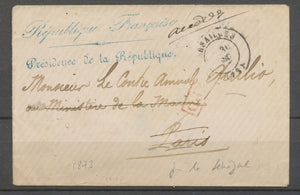 République Française
Présidence de la République.
VERSAILLES
Monsieur Le Contre Amiral
au Ministère de la Marine
Paris
1873